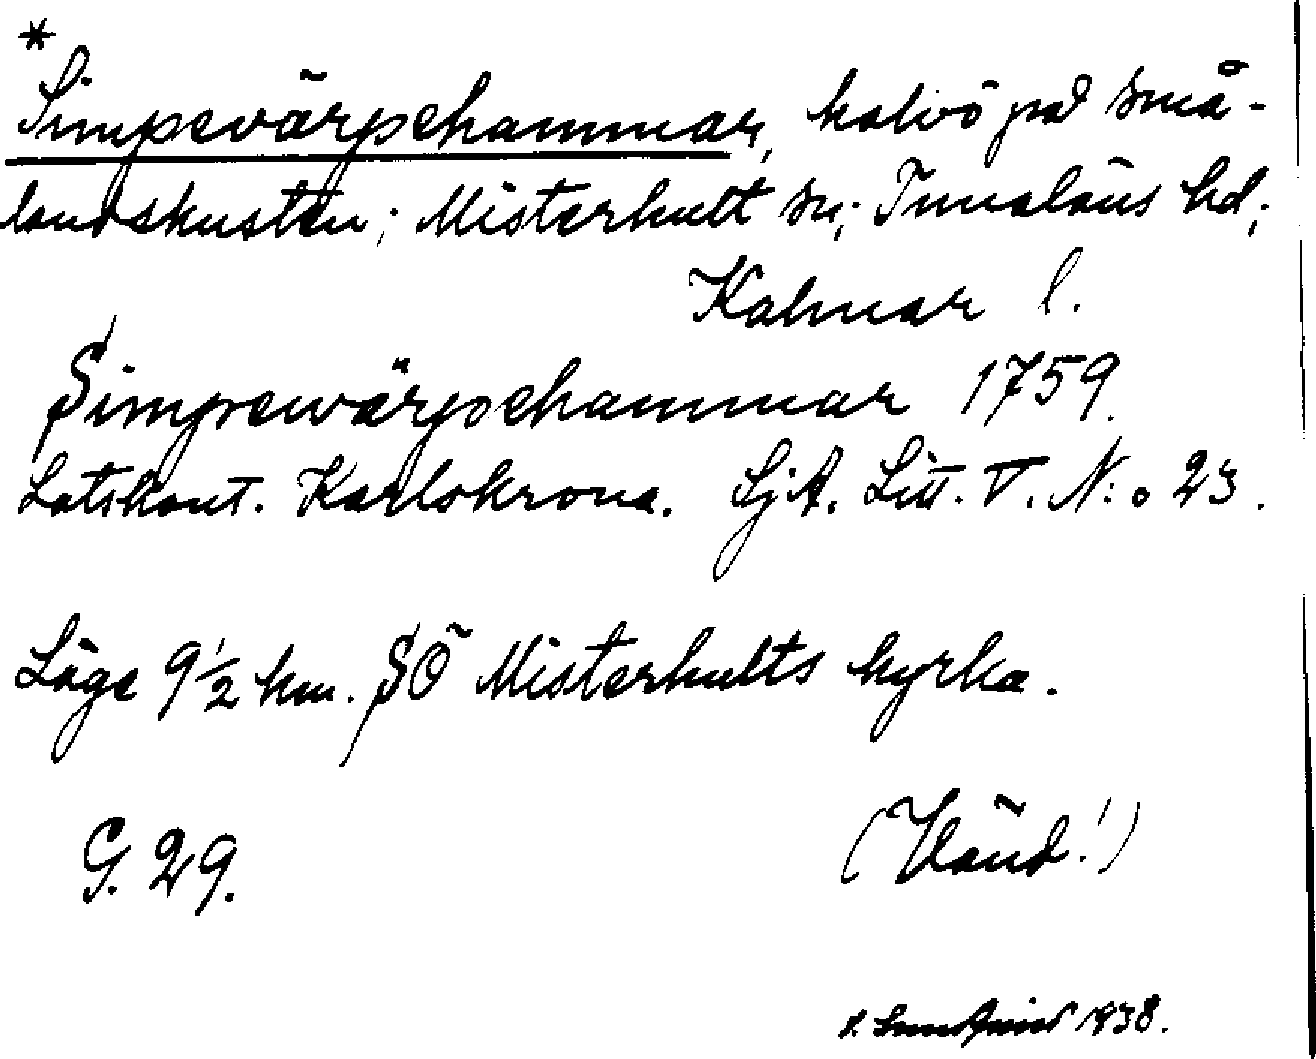 *
Simpevärpehammar, halvö på små-
landskusten; Misterhult sn; Tunaläns hd;
Kalmar l.
Simpewärpehammar 1759.
Lotskont. Karlskrona. SjA. Litt. V. N:o 23.
Läge 9½ km. SÖ Misterhults kyrka.
G. 29.
(Vänd!)
1938.